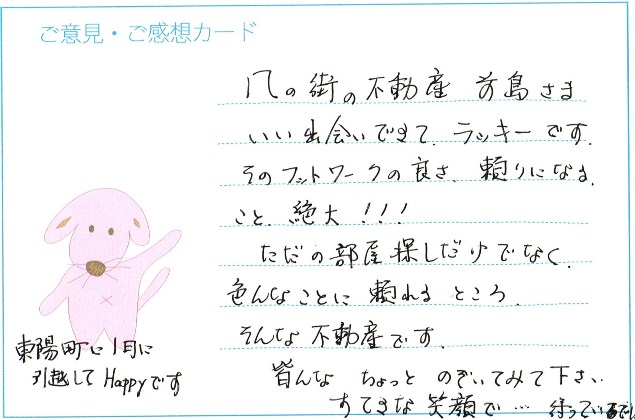 ご意見・ご感想カード
の街の不動産 前島さま
いい出会いできて、ラッキーです。
そのフットワークの良さ、頼りになる、
こと、絶大!!!
ただの部屋探しだけでなく、
色んなことに頼れるところ、
そんな不動産です。
皆んな ちょっと のぞいてみて下さい
すてきな笑顔で… 待っている
東陽町に1月に
引越して Happyです